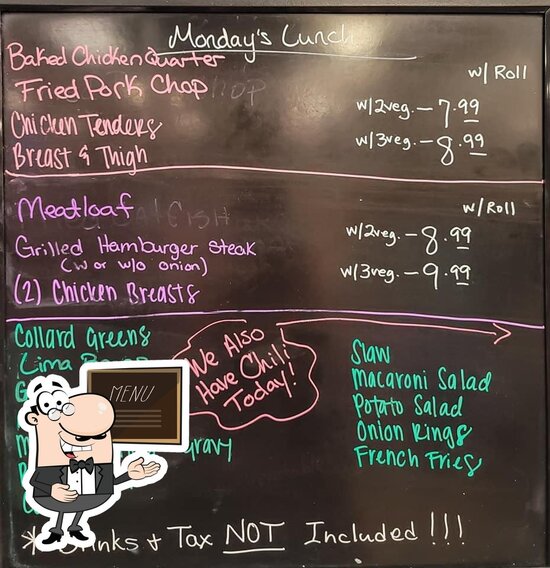 Monday's Lunch
Baked Chicken Quarter
w/ Roll
Fried Pork Chop
w/2veg. – 7.99
Chicken Tenders
w/3veg. – 8.99
Breast & Thigh
Meatloaf
w/Roll
w/2veg. – 8.99
Grilled Hamburger Steak
(w or w/o onion)
w/3veg. – 9.99
(2) Chicken Breasts
Collard Greens
Lima
We Also
Have Chili
Today!
Slaw
Macaroni Salad
Potato Salad
Onion Rings
French Fries
MENU
Gravy
* Drinks + Tax NOT Included !!!